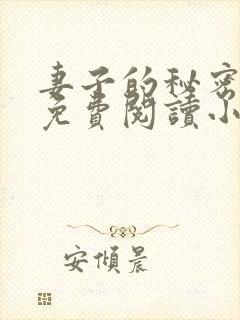 妻子的秘密
免費閱讀小
安傾晨